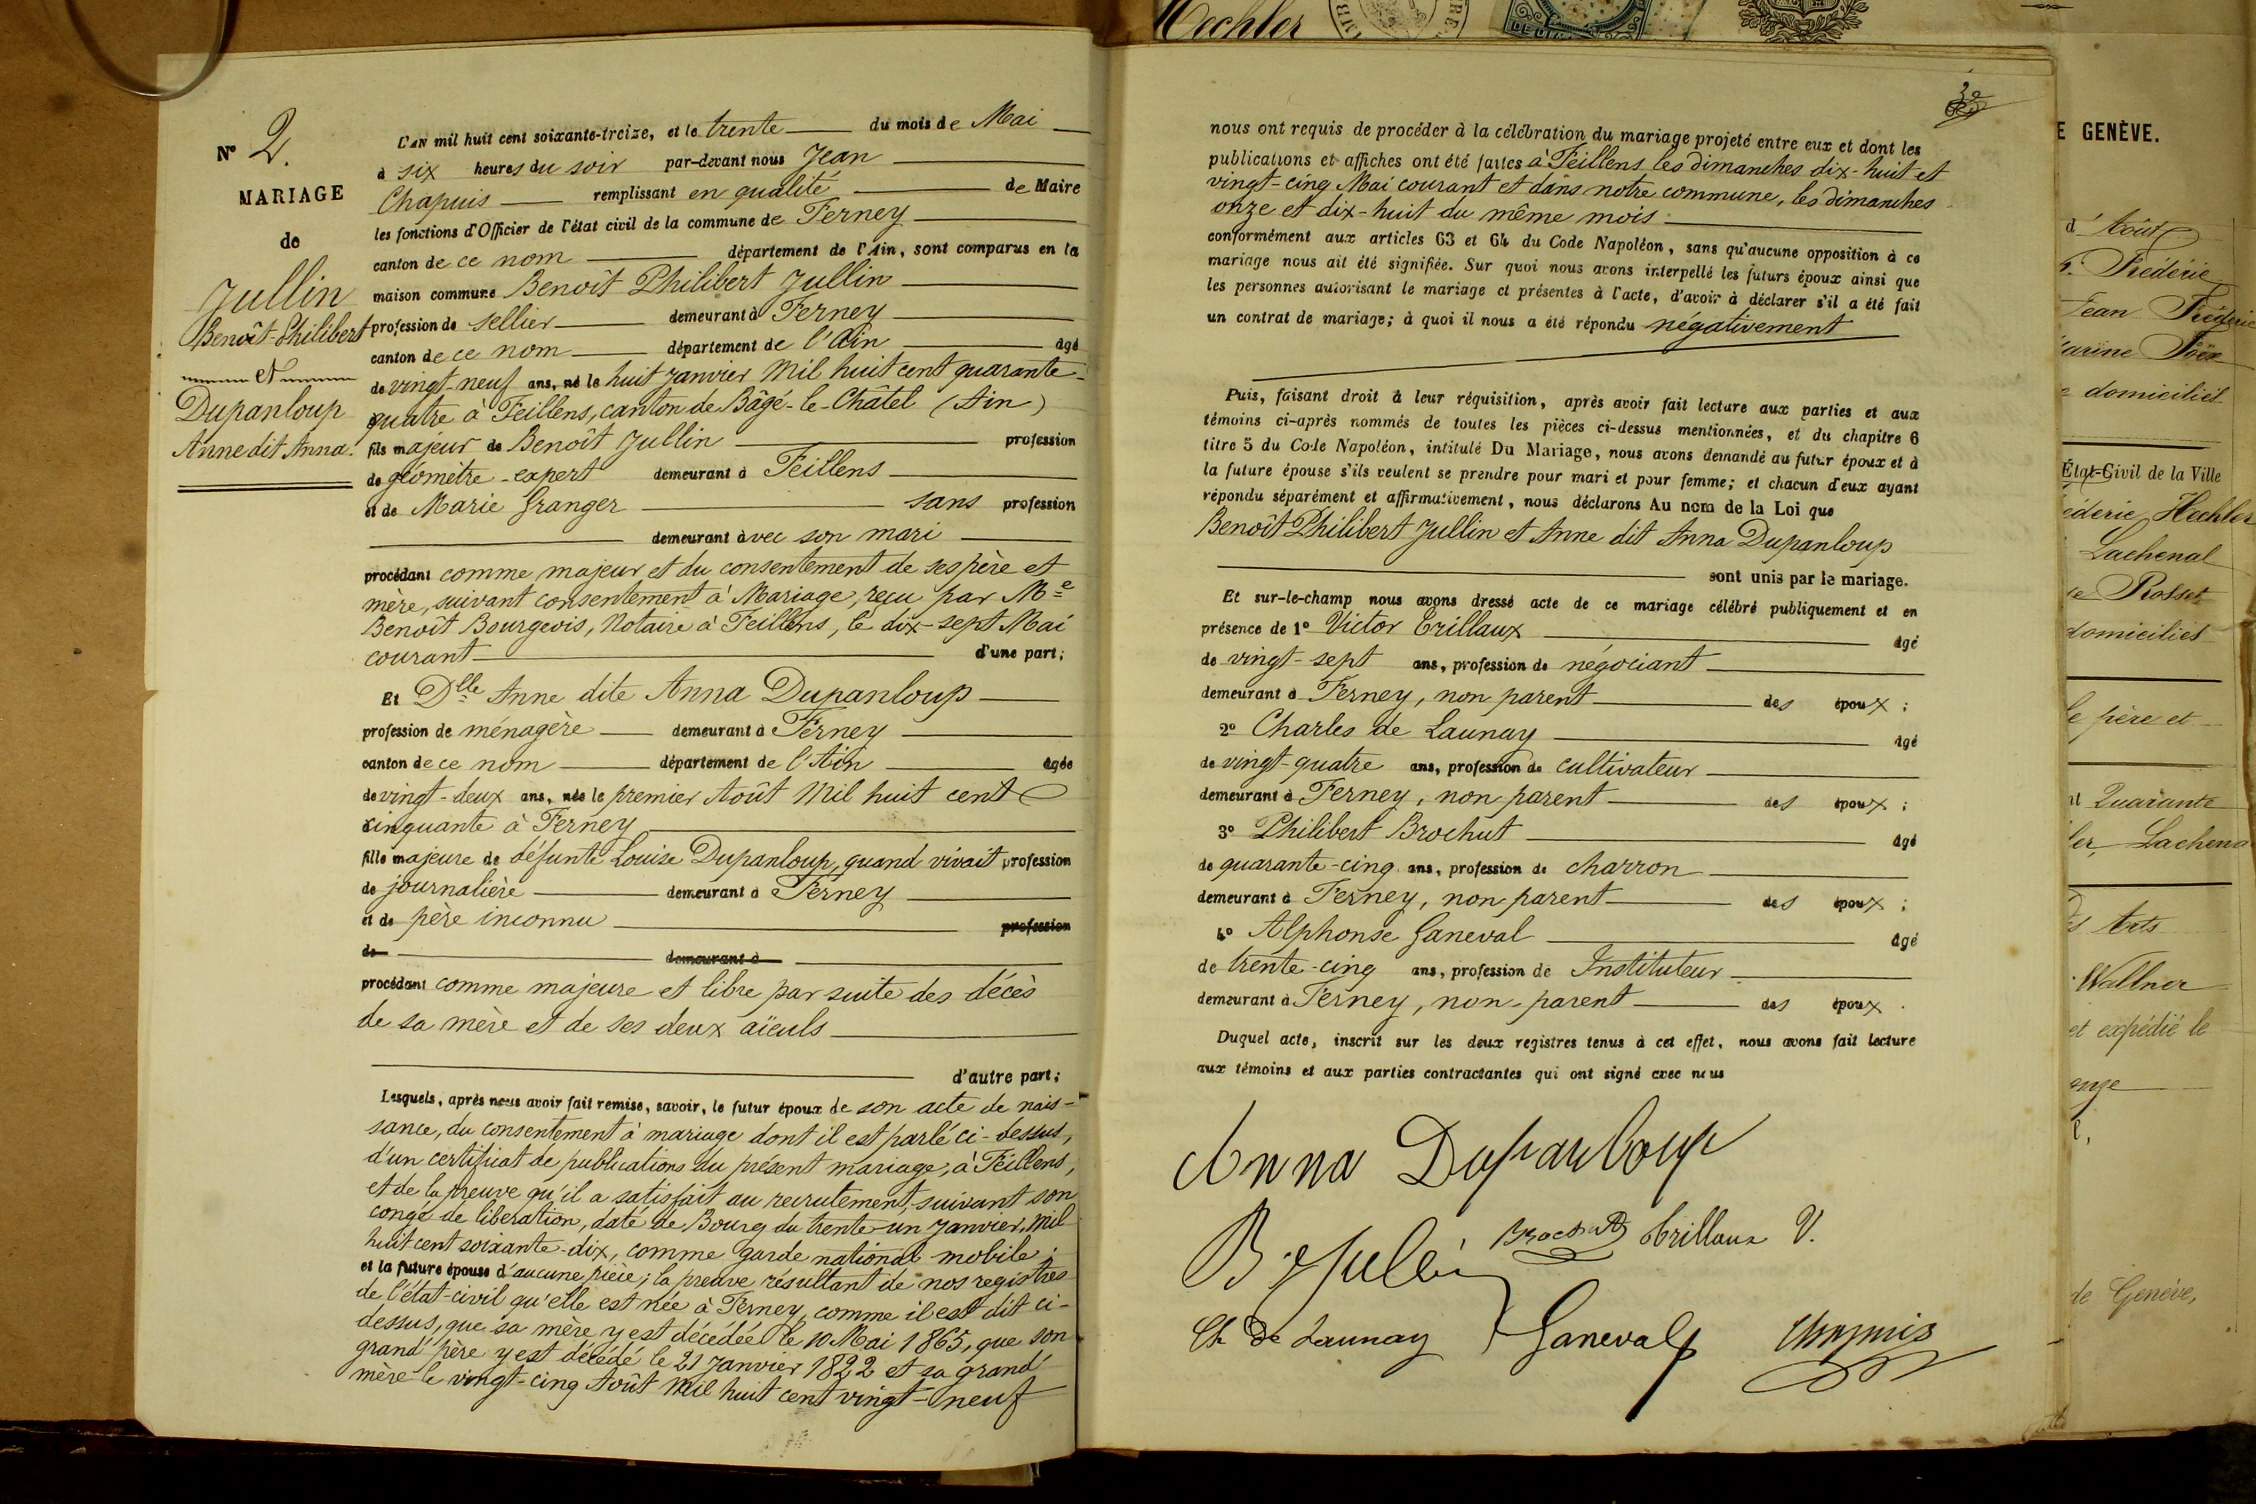 Nº 2.
MARIAGE
de
Jullin
Benoît-Philibert
et
Dupanloup
Anne dit Anna.
L'AN mil huit cent soixante-treize, et le trente du mois de Mai
à six heures du soir par-devant nous Jean
Chapuis remplissant en qualité de Maire
les fonctions d'Officier de l'état civil de la commune de Ferney
canton de ce nom département de l'Ain, sont comparus en la
maison commune Benoît Philibert Jullin
profession de sellier demeurant à Ferney
canton de ce nom département de l'Ain âgé
de vingt-neuf ans, né le huit Janvier Mil huit cent quarante-
quatre à Feillens, canton de Bâgé-le-Châtel (Ain)
fils majeur de Benoît Jullin profession
de géomètre-expert demeurant à Feillens
et de Marie Granger sans profession
demeurant avec son mari
procédant comme majeur et du consentement de ses père et
mère, suivant consentement à Mariage, reçu par Me
Benoît Bourgeois, Notaire à Feillens, le dix-sept Mai
courant d'une part;
Et Dlle Anne dite Anna Dupanloup
profession de ménagère demeurant à Ferney
canton de ce nom département de l'Ain âgée
de vingt-deux ans, née le premier Août Mil huit cent
cinquante à Ferney
fille majeure de défunte Louise Dupanloup, quand vivait profession
de journalière demeurant à Ferney
et de père inconnu profession
de demeurant à
procédant comme majeure et libre par suite des décès
de sa mère et de ses deux aïeuls
d'autre part;
Lesquels, après nous avoir fait remise, savoir, le futur époux de son acte de nais-
sance, du consentement à mariage dont il est parlé ci-dessus,
d'un certificat de publications du présent mariage, à Feillens,
et de la preuve qu'il a satisfait au recrutement, suivant son
congé de libération, daté de Bourg du trente-un Janvier Mil
huit cent soixante-dix, comme garde national mobile;
et la future épouse d'aucune pièce; la preuve résultant de nos registres
de l'état-civil qu'elle est née à Ferney, comme il est dit ci-
dessus, que sa mère y est décédée le 10 Mai 1865, que son
grand père y est décédé le 21 Janvier 1822 et sa grand'
mère le vingt-cinq Août Mil huit cent vingt-neuf
nous ont requis de procéder à la célébration du mariage projeté entre eux et dont les
publications et affiches ont été faites à Feillens les dimanches dix-huit et
vingt-cinq Mai courant et dans notre commune, les dimanches
onze et dix-huit du même mois
conformément aux articles 63 et 64 du Code Napoléon, sans qu'aucune opposition à ce
mariage nous ait été signifiée. Sur quoi nous avons interpellé les futurs époux ainsi que
les personnes autorisant le mariage et présentes à l'acte, d'avoir à déclarer s'il a été fait
un contrat de mariage; à quoi il nous a été répondu négativement
Puis, faisant droit à leur réquisition, après avoir fait lecture aux parties et aux
témoins ci-après nommés de toutes les pièces ci-dessus mentionnées, et du chapitre 6
titre 5 du Code Napoléon, intitulé Du Mariage, nous avons demandé au futur époux et à
la future épouse s'ils veulent se prendre pour mari et pour femme; et chacun d'eux ayant
répondu séparément et affirmativement, nous déclarons Au nom de la Loi que
Benoît Philibert Jullin et Anne dit Anna Dupanloup
sont unis par le mariage.
Et sur-le-champ nous avons dressé acte de ce mariage célébré publiquement et en
présence de 1º Victor Crillaux âgé
de vingt-sept ans, profession de négociant
demeurant à Ferney, non parent des époux;
2º Charles de Launay âgé
de vingt-quatre ans, profession de cultivateur
demeurant à Ferney, non parent des époux;
3º Philibert Brochut âgé
de quarante-cinq ans, profession de charron
demeurant à Ferney, non parent des époux;
4º Alphonse Ganeval âgé
de trente-cinq ans, profession de Instituteur
demeurant à Ferney, non-parent des époux.
Duquel acte, inscrit sur les deux registres tenus à cet effet, nous avons fait lecture
aux témoins et aux parties contractantes qui ont signé avec nous
Anna Dupanloup
B Jullin Brochut Crillaux V.
Ch De Launay Ganeval Chapuis
Hechler
E GENÈVE.
d'Août
Frédéric
Jean Frédéric
domiciliés
État-Civil de la Ville
Hechler
Lachenal
Rosset
domiciliés
le père et
Quarante
Lachenal
Arts
Wallner
et expédié le
de Genève,